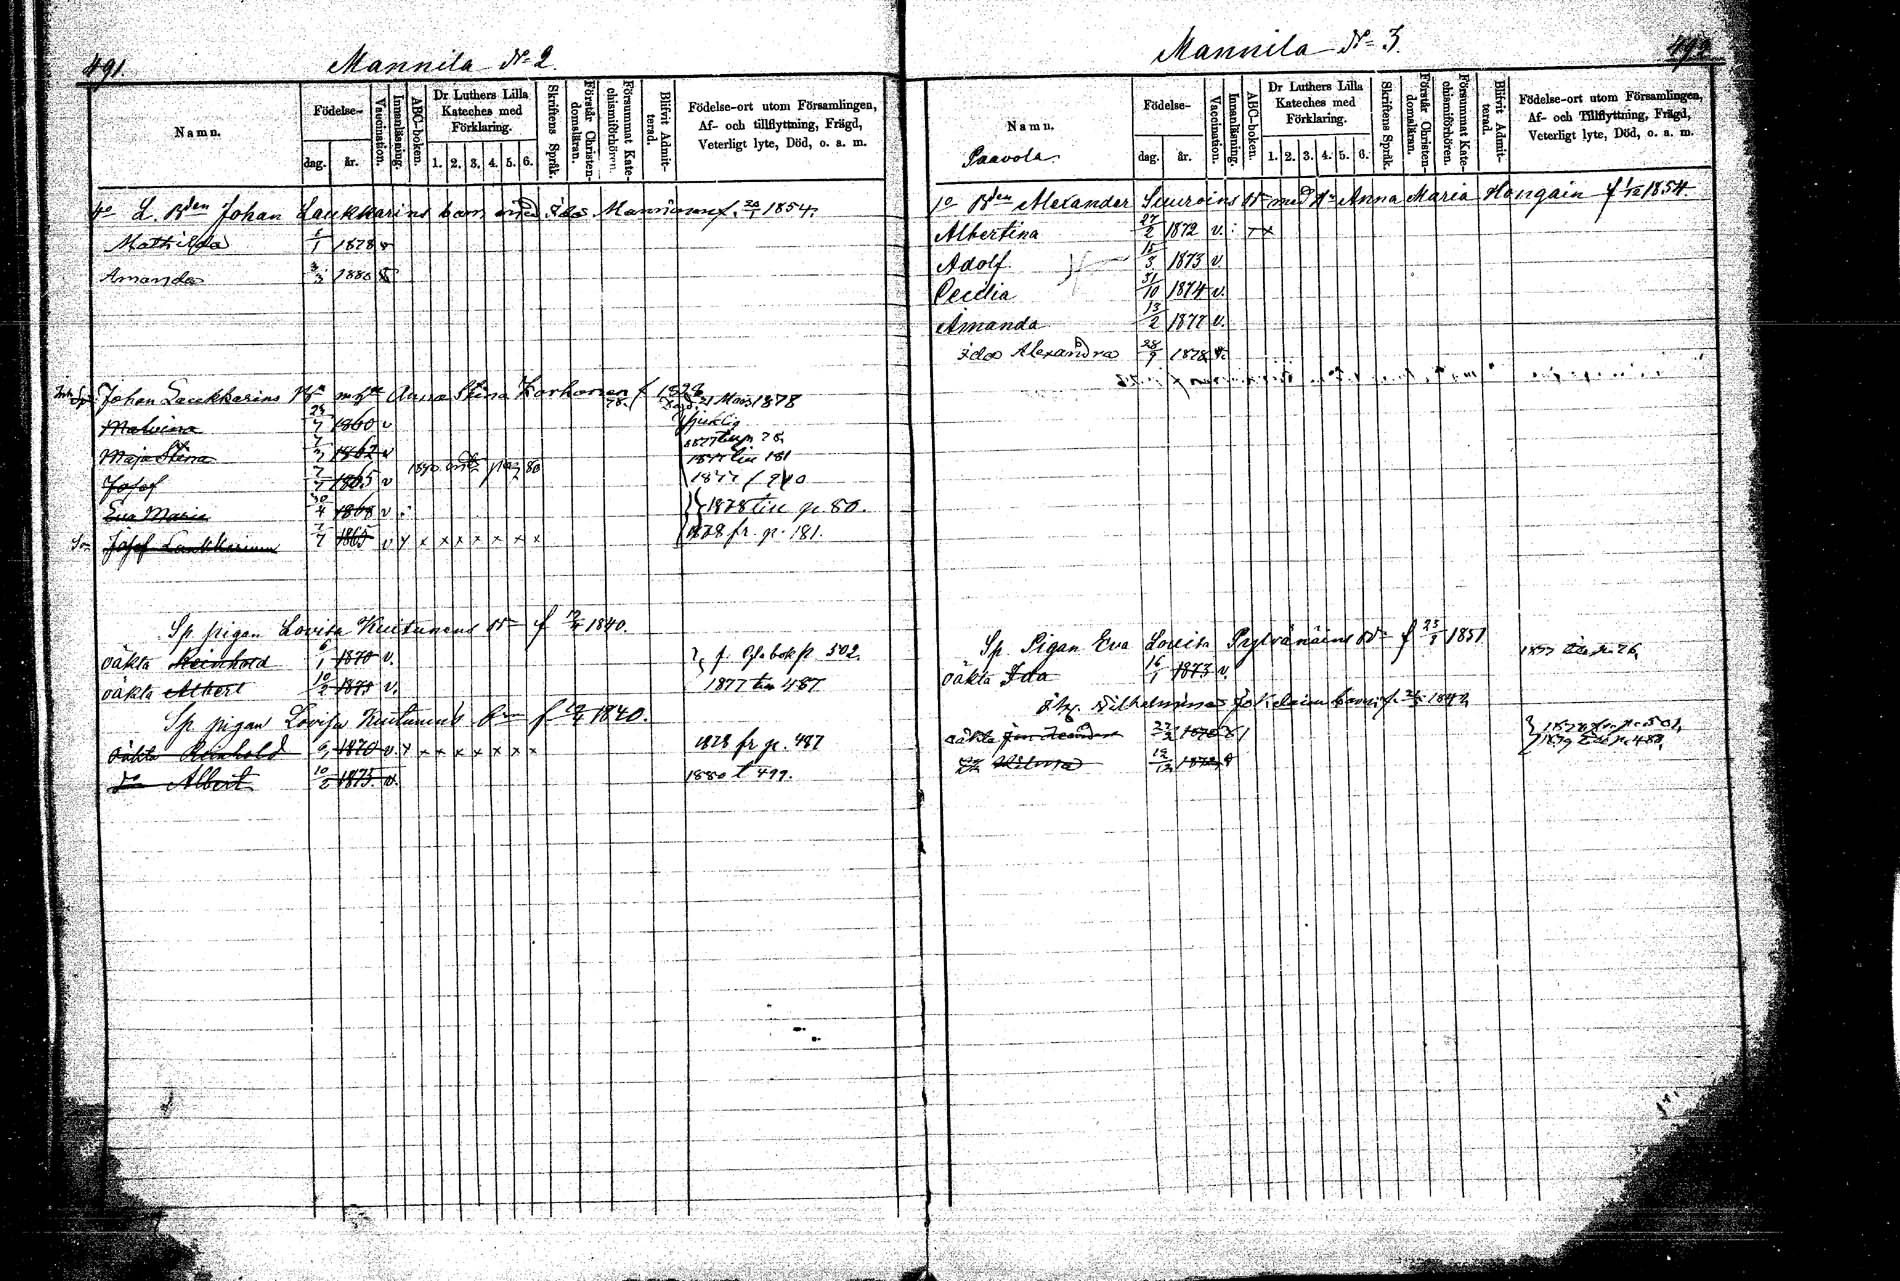 491.
Mannila No 2.
Namn.
Födelse-
dag.
år.
Vaccination.
Innanläsning.
ABC-boken.
Dr Luthers Lilla Kateches med Förklaring.
1. 2. 3. 4. 5. 6.
Skriftens Språk.
Förstår Christendomsläran.
Försummat Katechismiförhören.
Blifvit Admitterad.
Födelse-ort utom Församlingen,
Af- och tillflyttning, Frägd,
Veterligt lyte, Död, o. a. m.
4o L. Bden Johan Laukkarins barn med Ida Manninen f. 20/1 1854.
Mathilda 1878 v
Amanda 3/3 1880 v
Johan Laukkarins Anna Stina Korhonen f 1828
Död 21 Mars 1878
Malvina 1860 v sjuklig
Maja Stina 1862 v 1877 till 181
Josef 7/7 1865 v
Eva Maria 30/4 1868 v 1878 till p 80.
Son Josef Laukkarinen 7/7 1865 v x x x x x x x x 1878 fr. p. 181.
Sp pigan Lovisa Kuitunens f 12/4 1840.
oäkta Reinhold 6/1 1870 v. bok p. 502.
oäkta Albert 10/2 1875 v. 1877 till 487
Sp. pigan Lovisa Kuitunens f 12/4 1840.
oäkta Reinhold 1870 v. x x x x x x x x 1878 fr p. 487
do Albert 10/2 1875. v. 1880 t 499.
492
Mannila No 3.
Namn.
Paavola
Födelse-
dag.
år.
Vaccination.
Innanläsning.
ABC-boken.
Dr Luthers Lilla Kateches med Förklaring.
1. 2. 3. 4. 5. 6.
Skriftens Språk.
Förstår Christendomsläran.
Försummat Katechismiförhören.
Blifvit Admitterad.
Födelse-ort utom Församlingen,
Af- och Tillflyttning, Frägd,
Veterligt lyte, Död, o. a. m.
1o Bden Alexander Suuroins med Anna Maria Hongain f 1/12 1854.
Albertina 27/2 1872 v. x x
Adolf 15/3 1873 v.
Cecilia 31/10 1874 v.
Amanda 13/2 1877 v.
Ida Alexandra 28/9 1878 v.
Sp. Pigan Eva Lovisa Pylvänäins f 23/1 1851
oäkta Ida 16/1 1873 v.
Vilhelmina Jokelain barn f. 1842
oäkta
1878 fr p. 501,
1879 till p. 488.